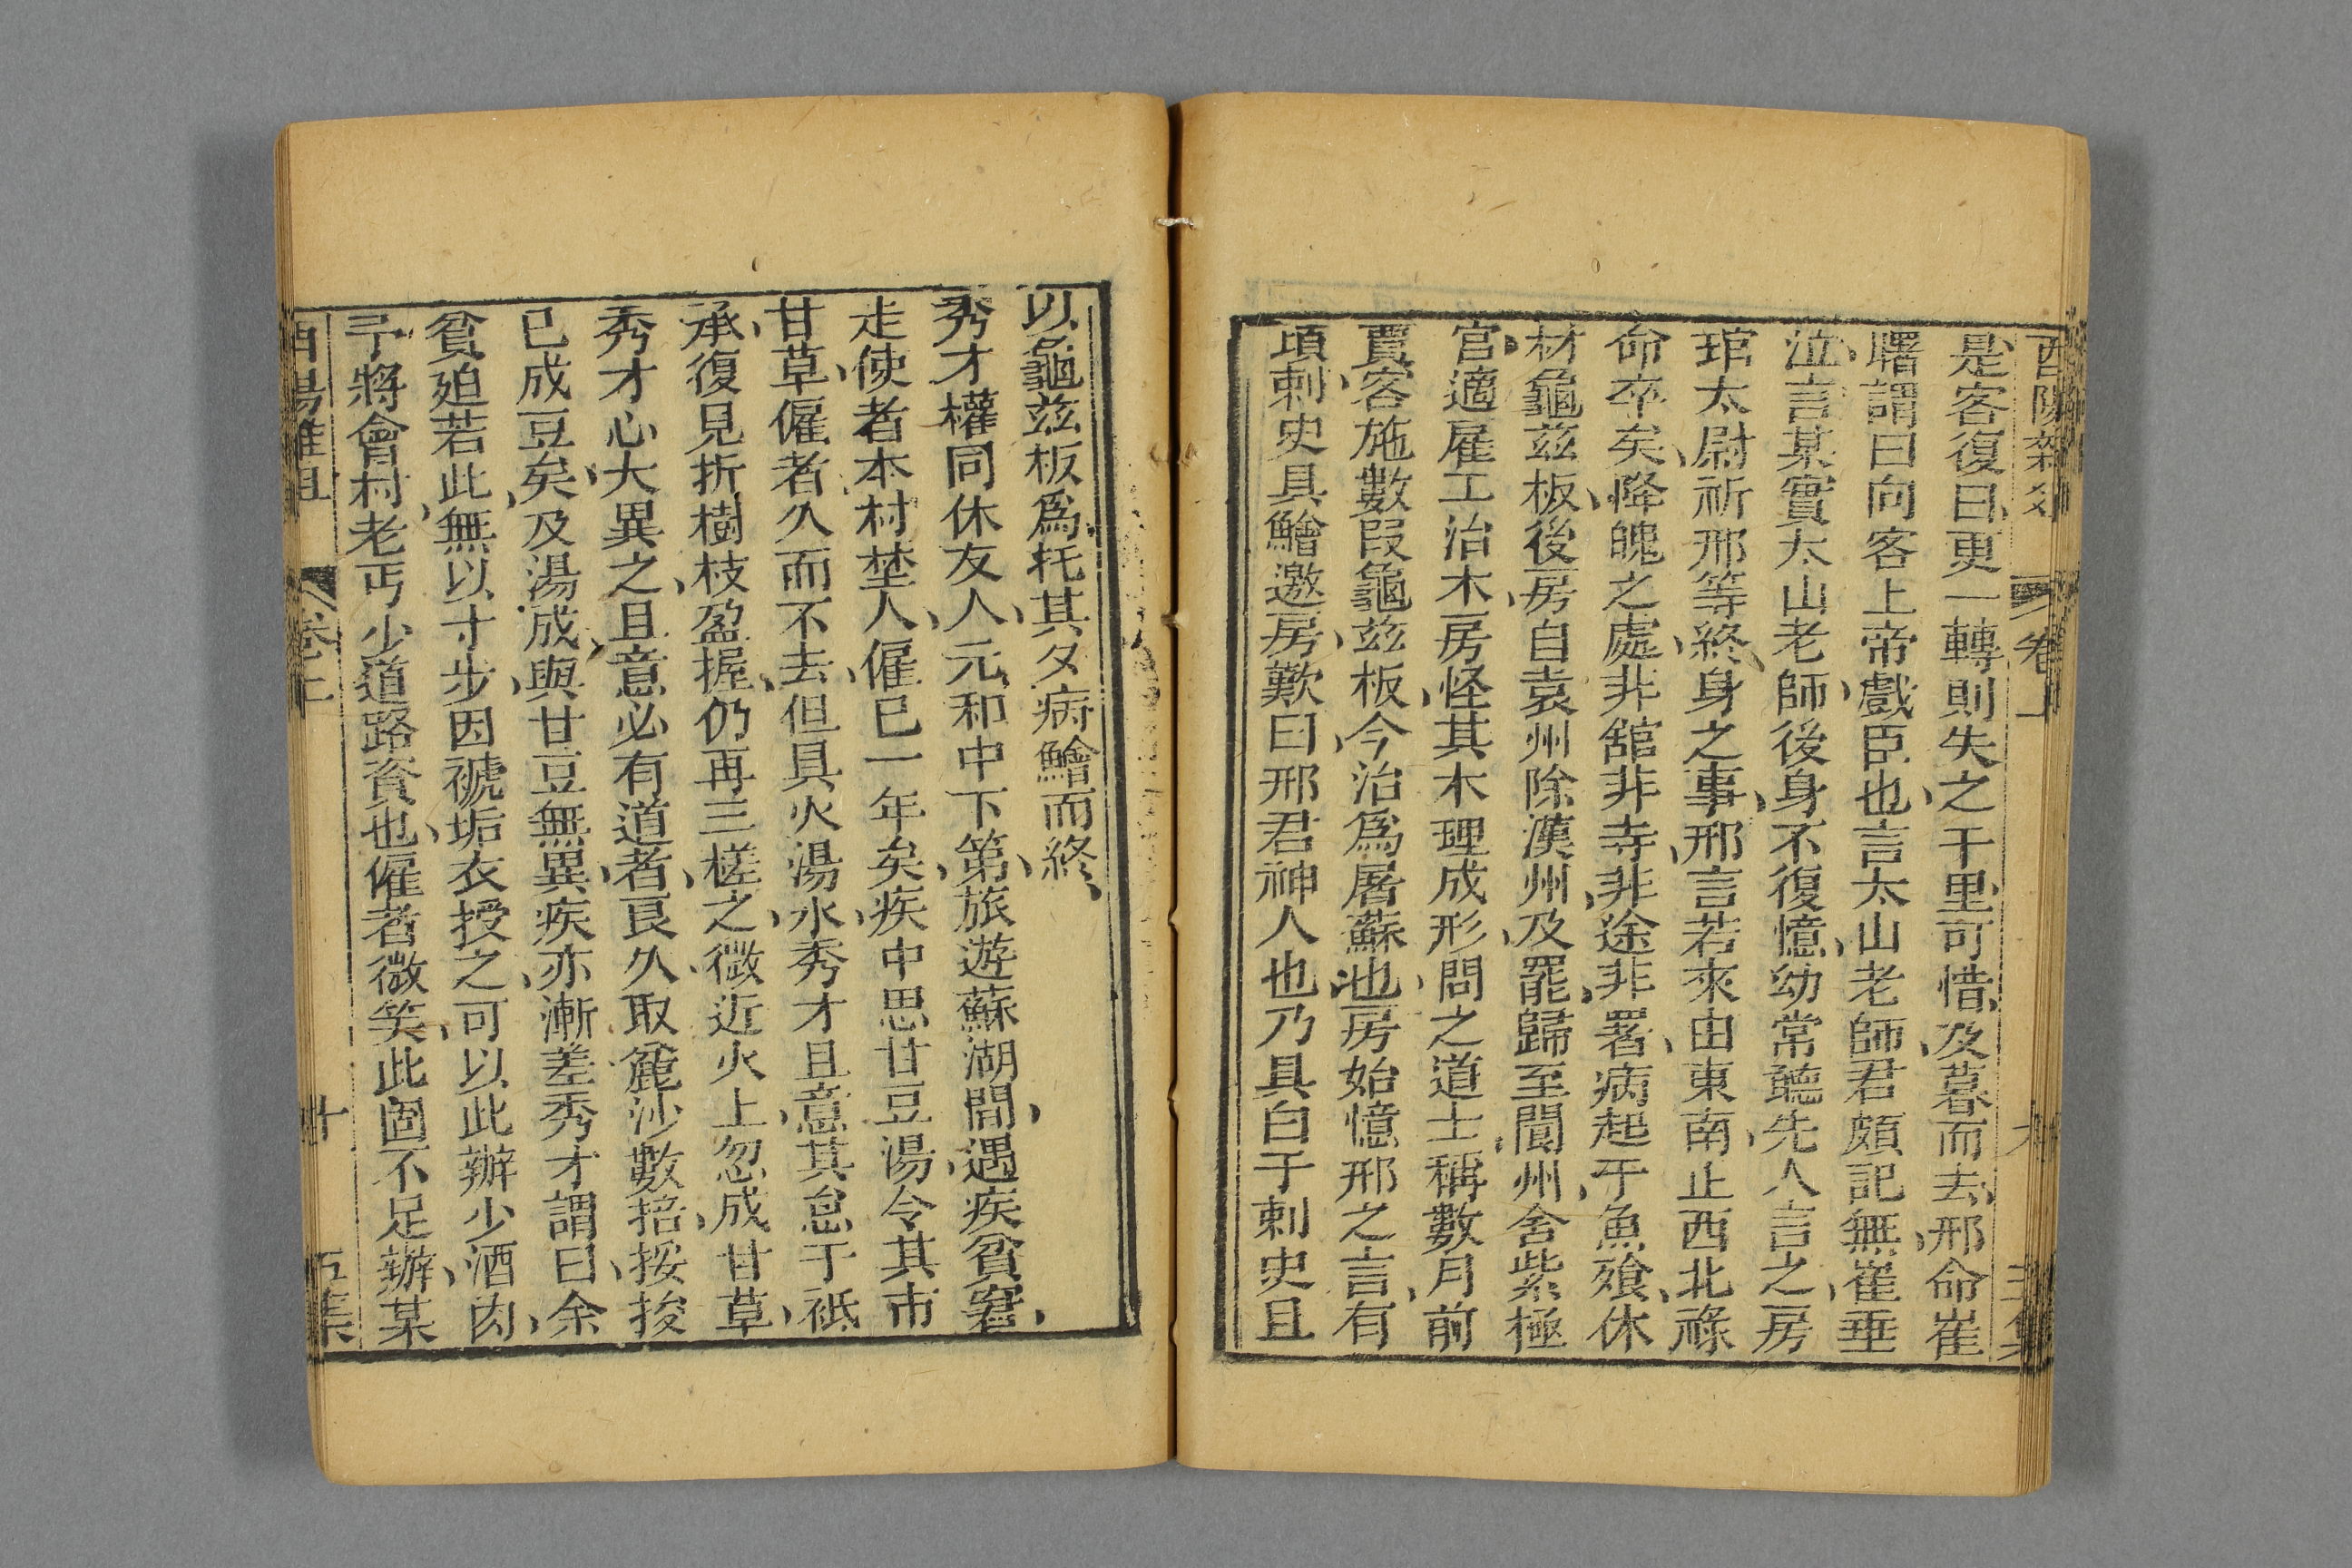 酉陽雜俎 卷上 九 五集
是客復曰更一轉則失之千里可惜及暮而去邢命崔
曙謂曰向客上帝戲臣也言太山老師君頗記無崔垂
泣言某實太山老師後身不復憶幼常聽先人言之房
琯太尉祈邢等終身之事邢言若來由東南止西北祿
命卒矣降魄之處非舘非寺非途非署病起于魚飱休
材龜茲板後房自袁州除漢州及罷歸至閬州舍紫極
宮適雇工治木房怪其木理成形問之道士稱數月前
賈客施數段龜茲板今治爲屠蘇也房始憶邢之言有
頃刺史具鱠邀房歎曰邢君神人也乃具白于刺史且
以龜茲板爲托其夕病鱠而終
秀才權同休友人元和中下第旅遊蘇湖間遇疾貧窘
走使者本村埜人僱巳一年矣疾中思甘豆湯令其市
甘草僱者久而不去但具火湯水秀才且意其怠于祗
承復見折樹枝盈握仍再三槎之微近火上忽成甘草
秀才心大異之且意必有道者良久取麄沙數掊挼捘
巳成豆矣及湯成與甘豆無異疾亦漸差秀才謂曰余
貧廹若此無以寸步因褫垢衣授之可以此辦少酒肉
予將會村老丐少道路資也僱者微笑此固不足辦某
酉陽雜俎 卷上 十 五集